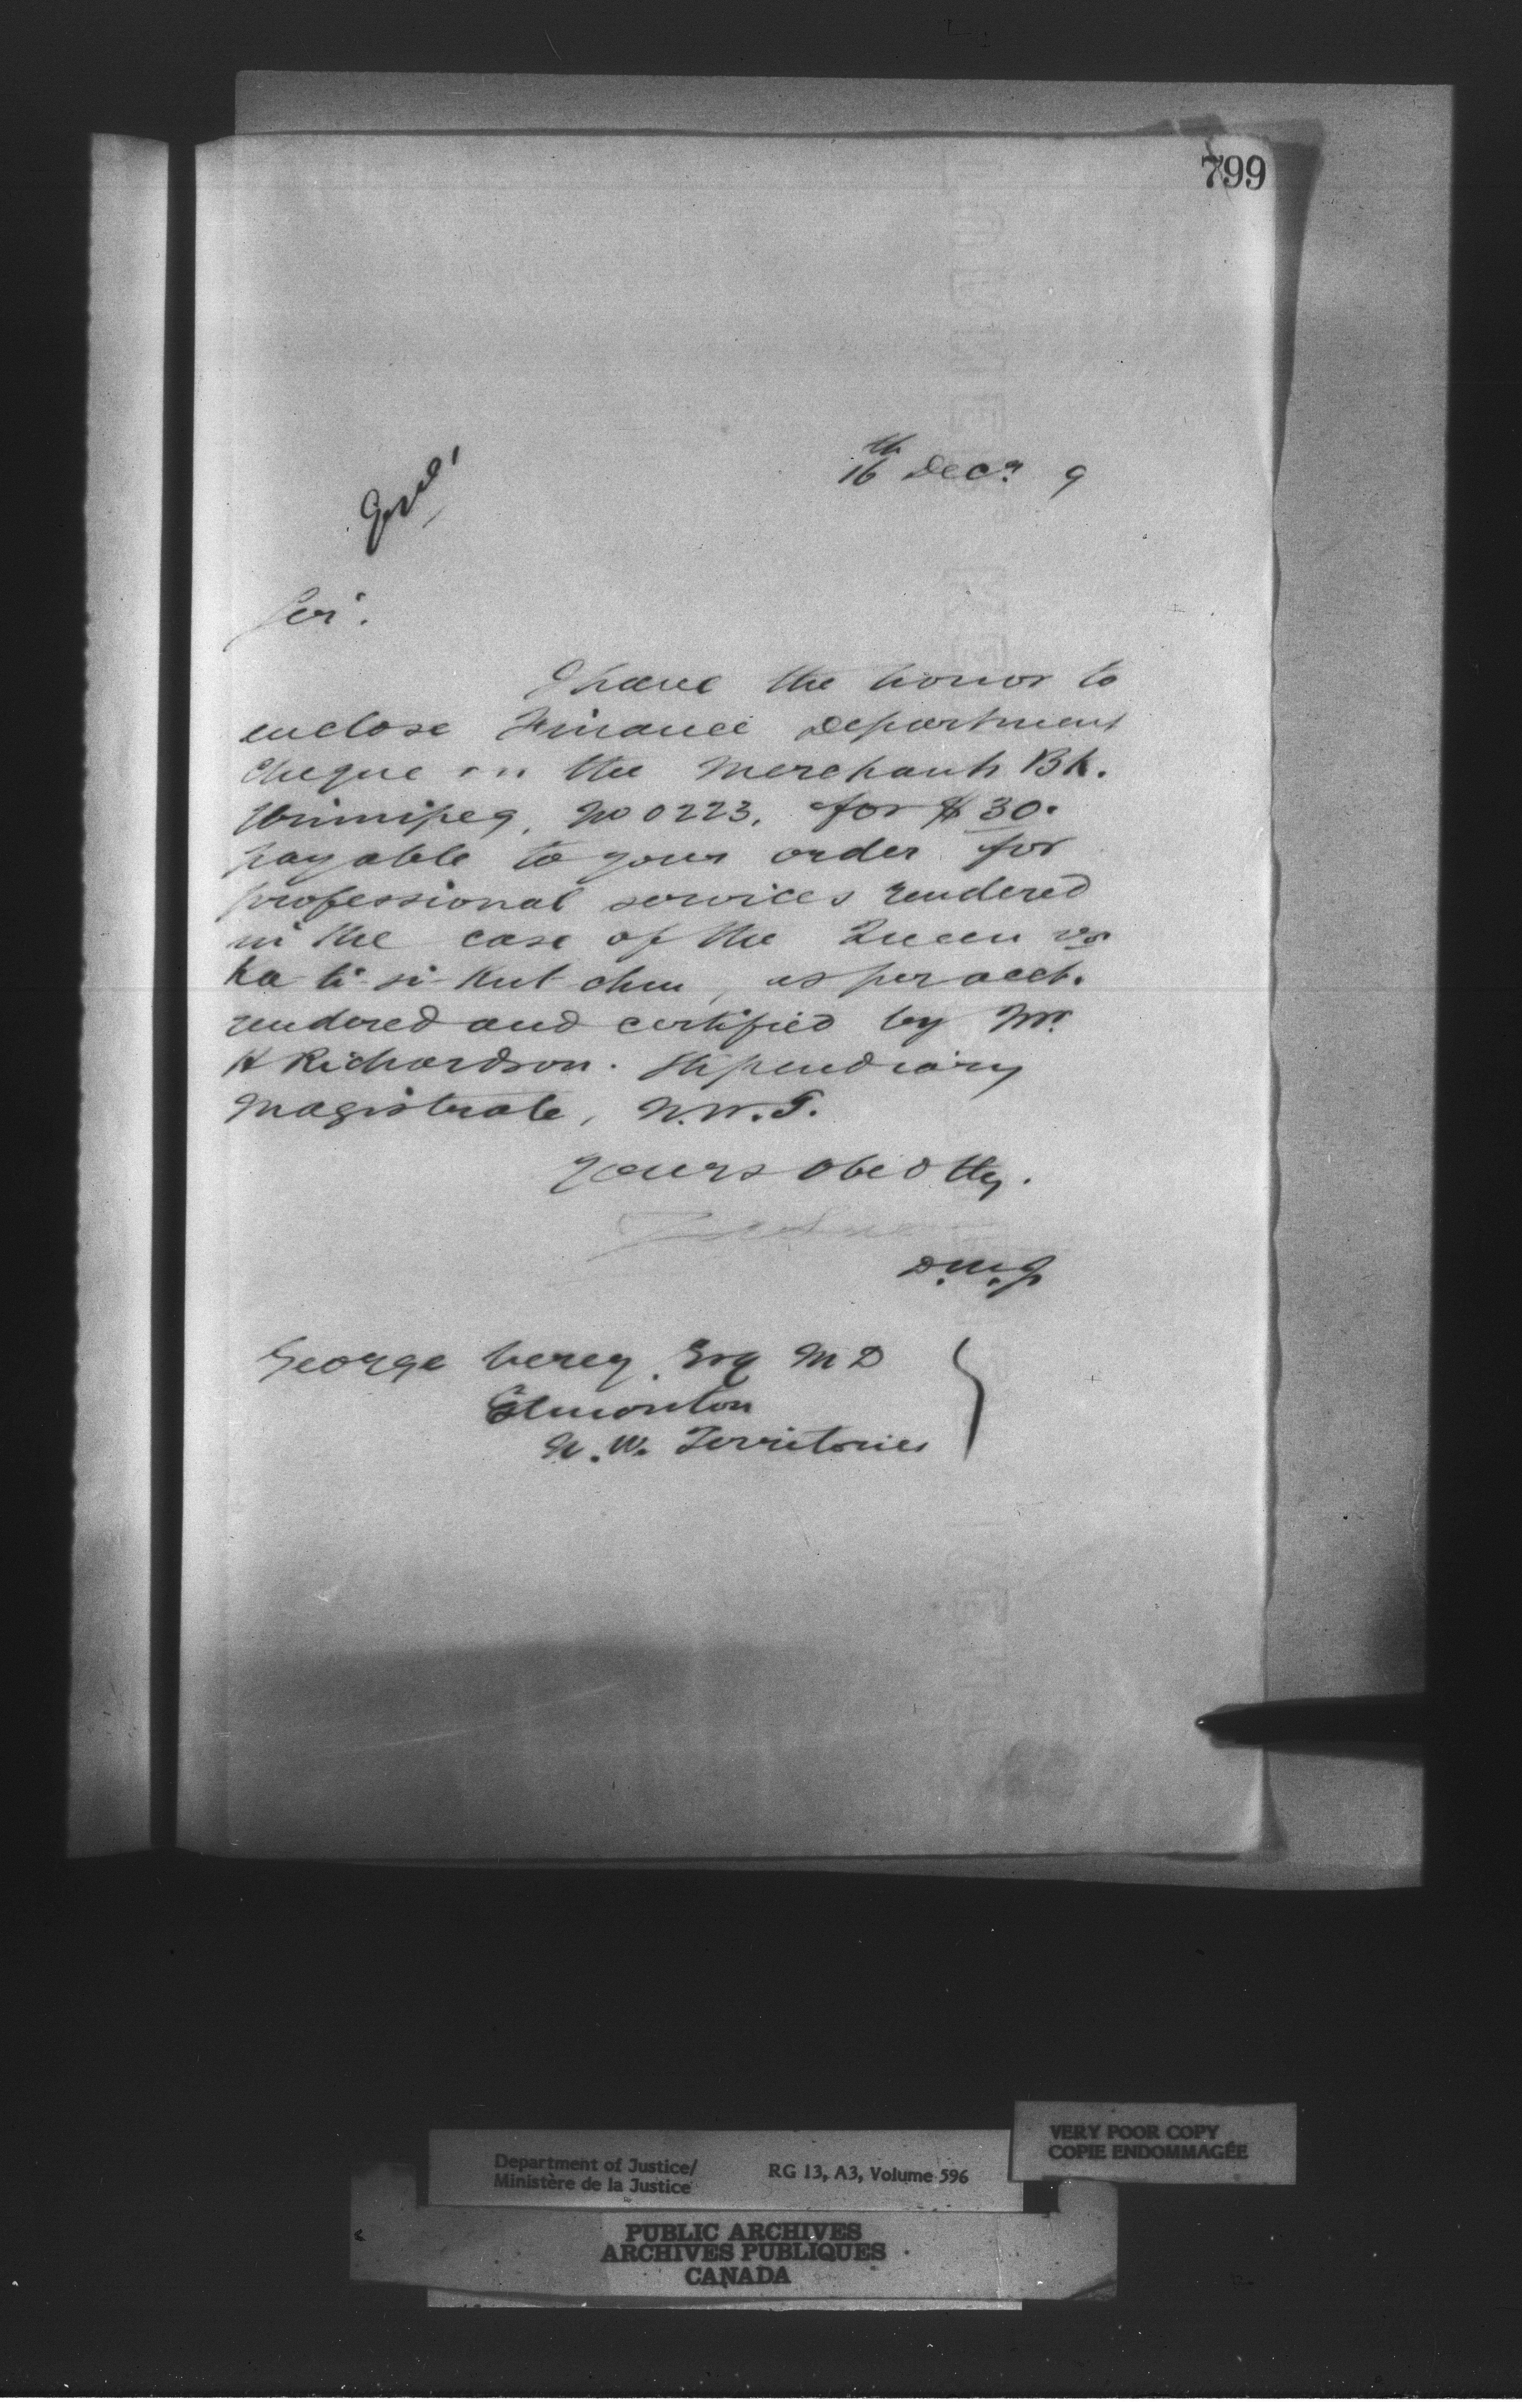 799
16th Decr 9
Sir.
I have the honor to
enclose Finance Department
cheque on the Merchants Bk.
Winnipeg, No 0223, for $30.
payable to your order for
professional services rendered
in the case of the Queen vs
Ka ti si Kut chen, as per acct.
rendered and certified by Mr.
H Richardson. Stipendiary
Magistrate, N.W.T.
Yours obedtly.
D.M.J.
George Verey, Esq M D
Edmonton
N.W. Territories
VERY POOR COPY
COPIE ENDOMMAGÉE
Department of Justice/ RG 13, A3, Volume 596
Ministère de la Justice
PUBLIC ARCHIVES
ARCHIVES PUBLIQUES
CANADA